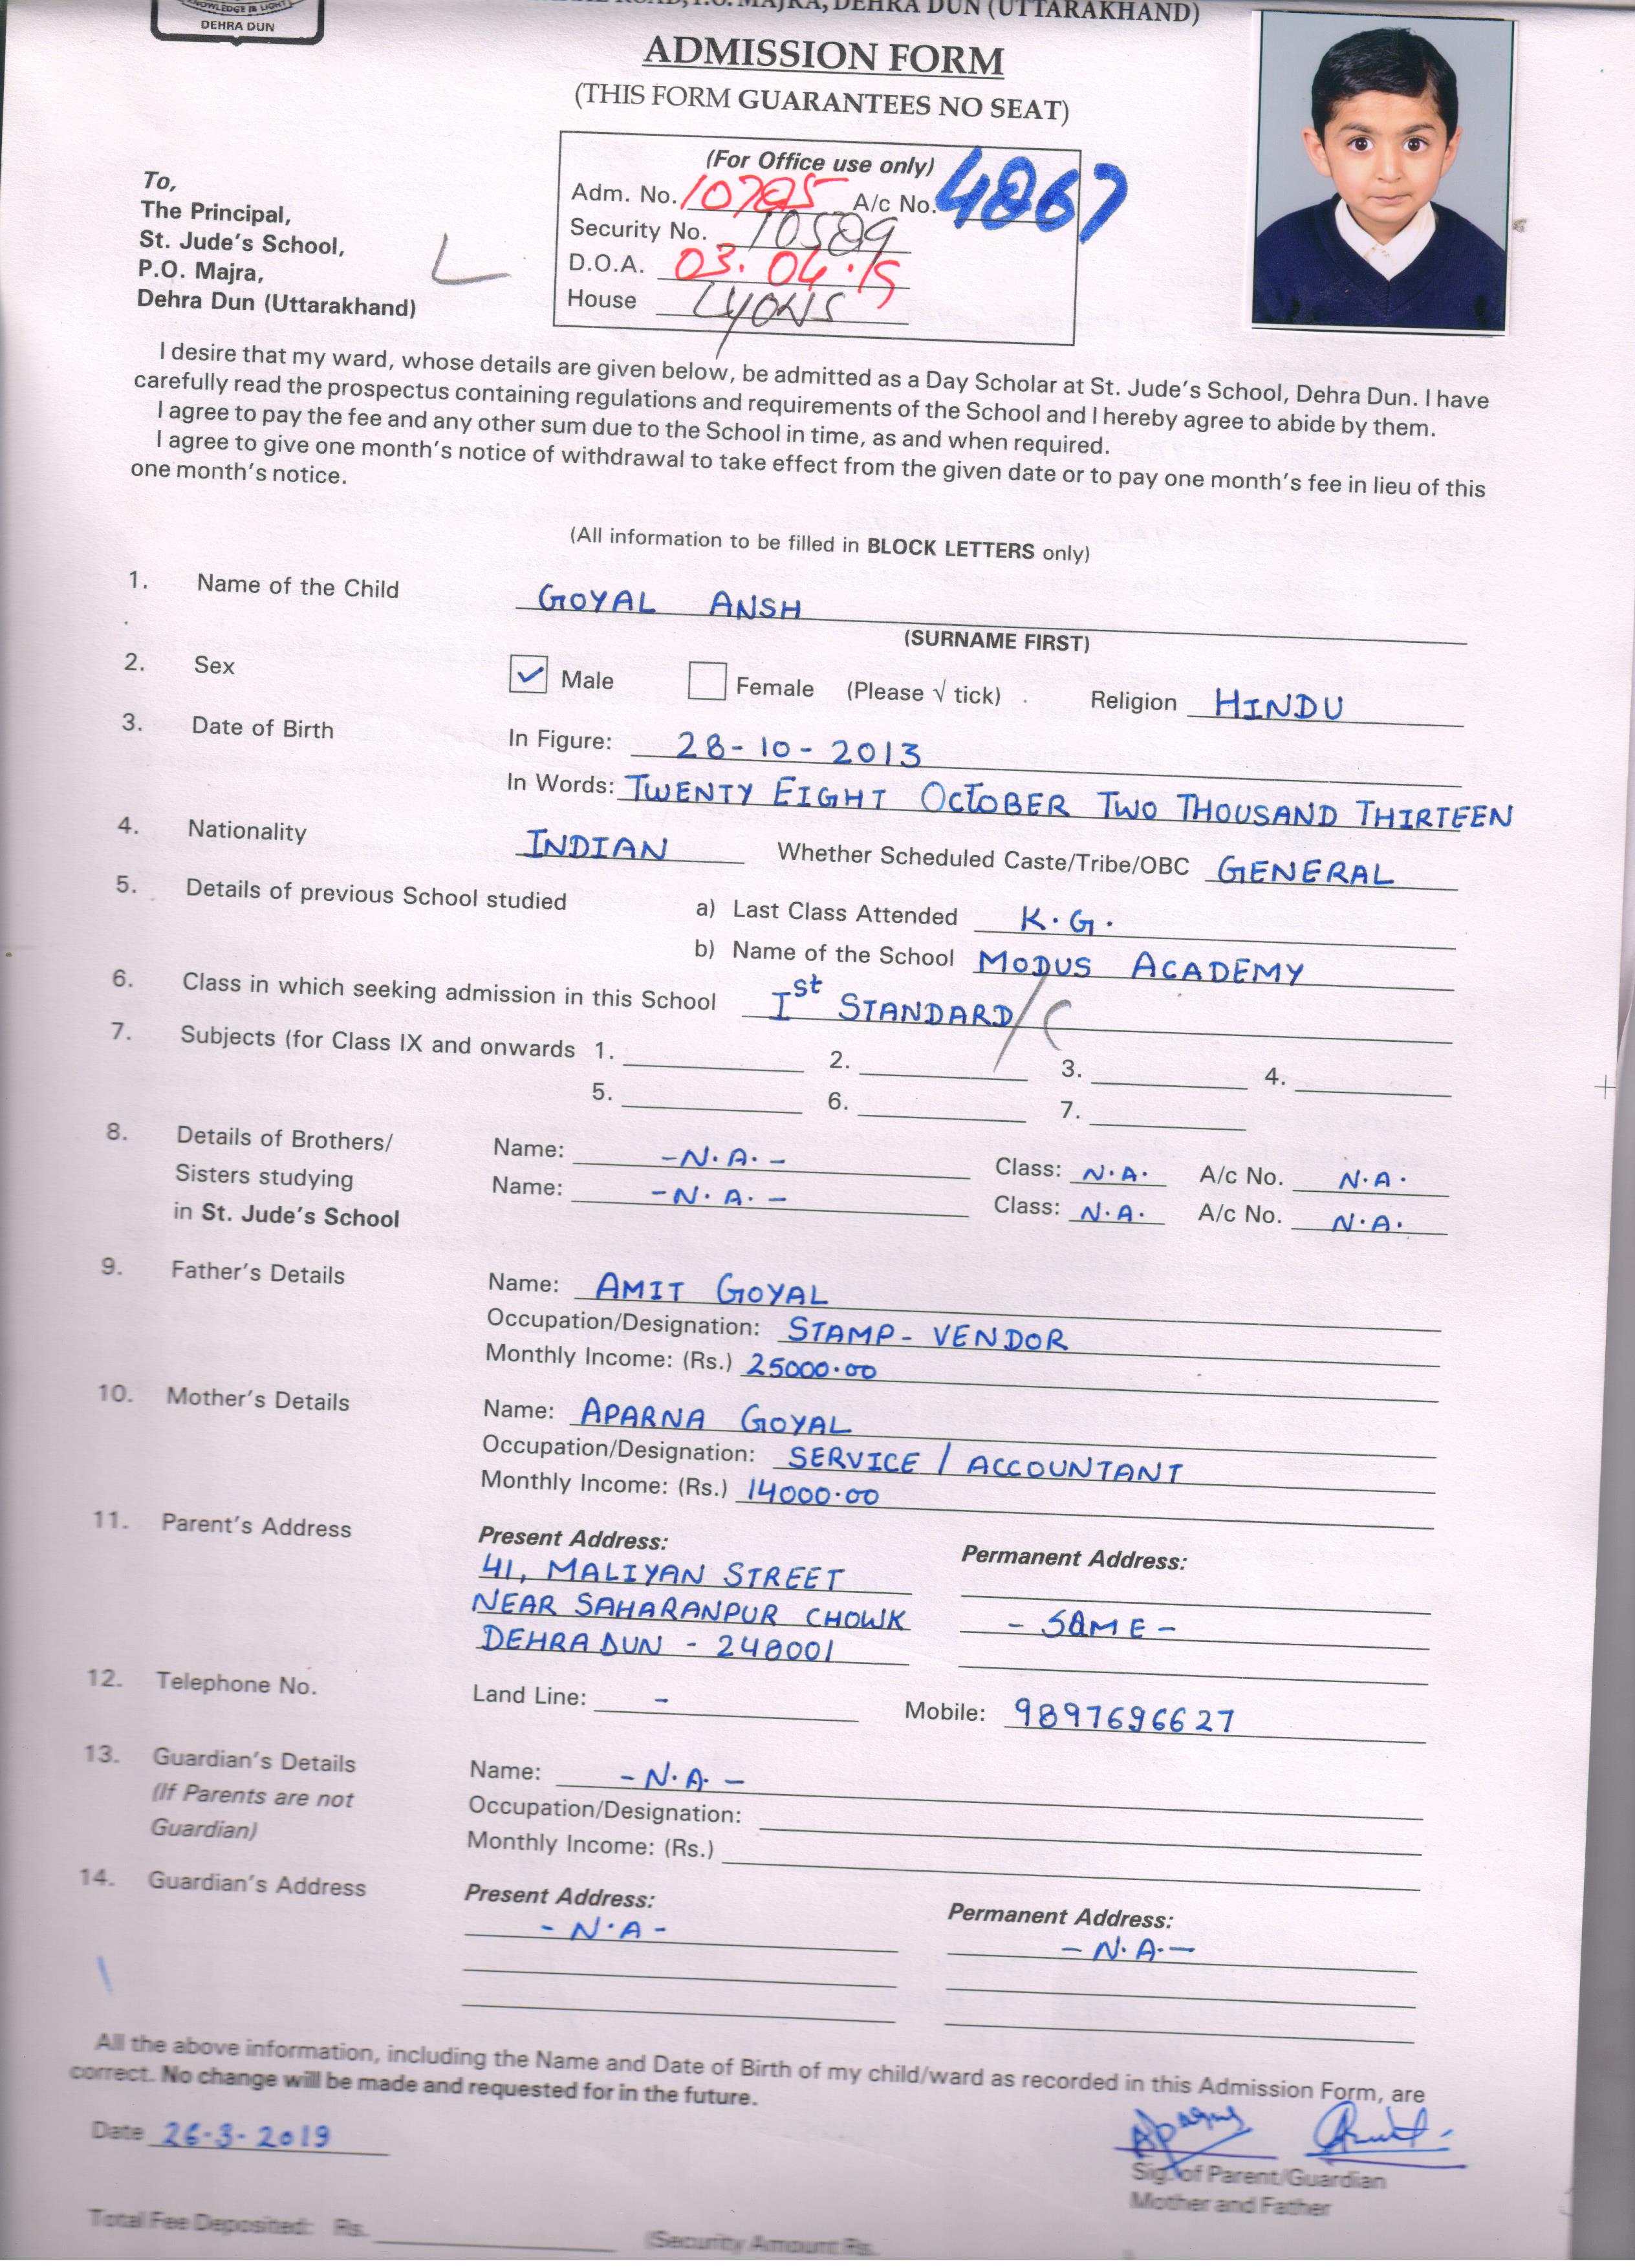 KNOWLEDGE IS LIGHT
DEHRA DUN
ROAD, P.O. MAJRA, DEHRA DUN (UTTARAKHAND)
ADMISSION FORM
(THIS FORM GUARANTEES NO SEAT)
(For Office use only)
Adm. No. 10705 A/c No. 4867
Security No. 10509
D.O.A. 03.04.15
House LYONS
To,
The Principal,
St. Jude's School,
P.O. Majra,
Dehra Dun (Uttarakhand)
I desire that my ward, whose details are given below, be admitted as a Day Scholar at St. Jude's School, Dehra Dun. I have
carefully read the prospectus containing regulations and requirements of the School and I hereby agree to abide by them.
I agree to pay the fee and any other sum due to the School in time, as and when required.
I agree to give one month's notice of withdrawal to take effect from the given date or to pay one month's fee in lieu of this
one month's notice.
(All information to be filled in BLOCK LETTERS only)
1. Name of the Child GOYAL ANSH
(SURNAME FIRST)
2. Sex ✓ Male Female (Please √ tick) Religion HINDU
3. Date of Birth In Figure: 28-10-2013
In Words: TWENTY EIGHT OCTOBER TWO THOUSAND THIRTEEN
4. Nationality INDIAN Whether Scheduled Caste/Tribe/OBC GENERAL
5. Details of previous School studied a) Last Class Attended K.G.
b) Name of the School MODUS ACADEMY
6. Class in which seeking admission in this School Ist STANDARD/C
7. Subjects (for Class IX and onwards 1. 2. 3. 4.
5. 6. 7.
8. Details of Brothers/ Name: -N.A.- Class: N.A. A/c No. N.A.
Sisters studying Name: -N.A.- Class: N.A. A/c No. N.A.
in St. Jude's School
9. Father's Details Name: AMIT GOYAL
Occupation/Designation: STAMP-VENDOR
Monthly Income: (Rs.) 25000.00
10. Mother's Details Name: APARNA GOYAL
Occupation/Designation: SERVICE / ACCOUNTANT
Monthly Income: (Rs.) 14000.00
11. Parent's Address Present Address: Permanent Address:
41, MALIYAN STREET
NEAR SAHARANPUR CHOWK -SAME-
DEHRADUN - 248001
12. Telephone No. Land Line: - Mobile: 9897696627
13. Guardian's Details Name: -N.A.-
(If Parents are not Occupation/Designation:
Guardian) Monthly Income: (Rs.)
14. Guardian's Address Present Address: Permanent Address:
-N.A- -N.A.-
All the above information, including the Name and Date of Birth of my child/ward as recorded in this Admission Form, are
correct. No change will be made and requested for in the future.
Date 26-3-2019
Sig. of Parent/Guardian
Mother and Father
Total Fee Deposited: Rs. (Security Amount Rs.